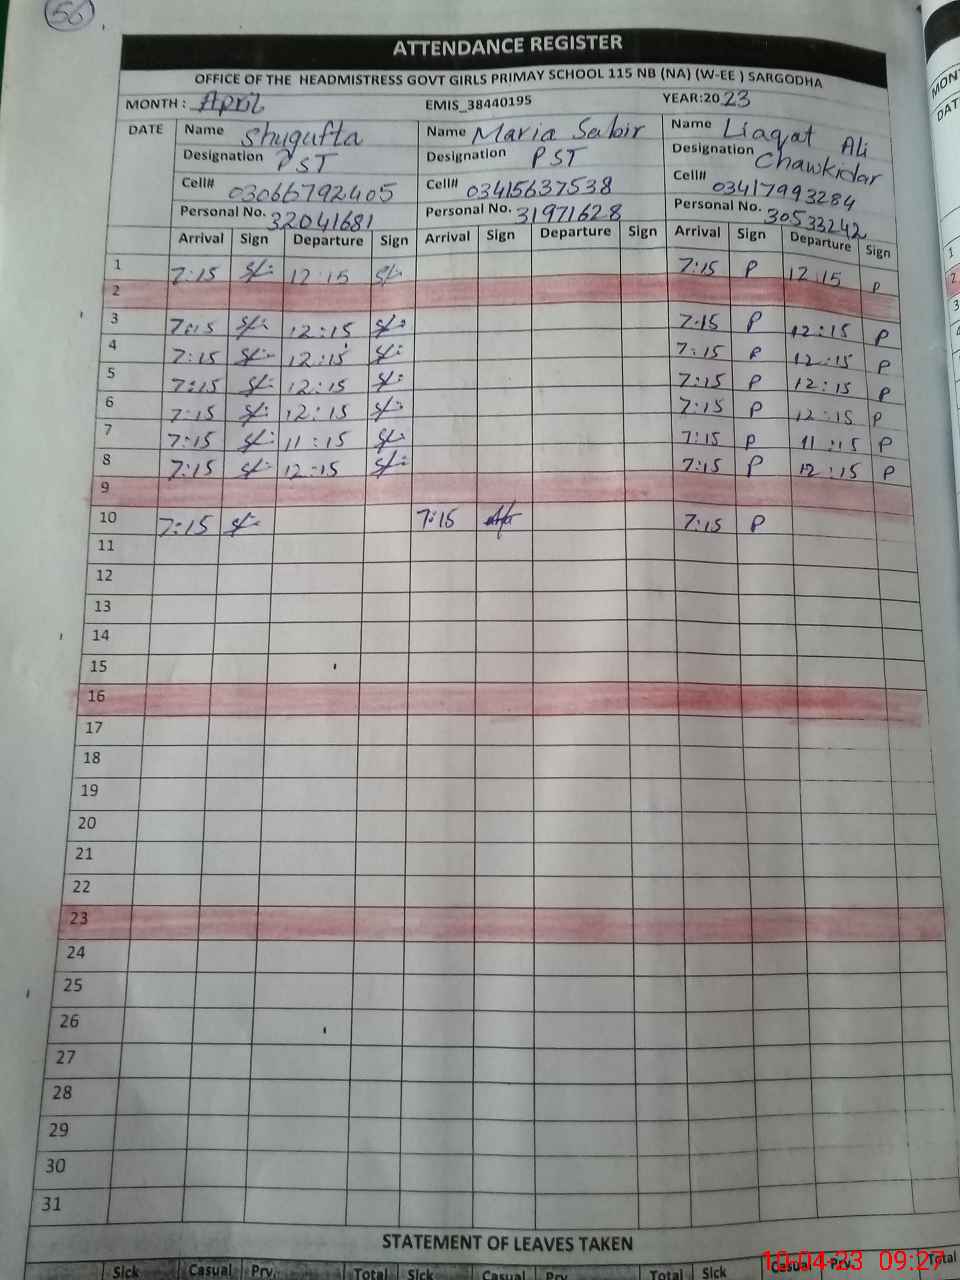 56
ATTENDANCE REGISTER
OFFICE OF THE HEADMISTRESS GOVT GIRLS PRIMAY SCHOOL 115 NB (NA) (W-EE ) SARGODHA
MONTH : April EMIS_38440195 YEAR:2023
DATE Name Shugufta Name Maria Sabir Name Liaqat Ali
Designation PST Designation PST Designation Chawkidar
Cell# 03066792405 Cell# 03415637538 Cell# 03417993284
Personal No. 32041681 Personal No. 31971628 Personal No. 30533242
Arrival Sign Departure Sign Arrival Sign Departure Sign Arrival Sign Departure Sign
1 7:15 12:15 7:15 P 12:15 P
2
3 7:15 12:15 7:15 P 12:15 P
4 7:15 12:15 7:15 P 12:15 P
5 7:15 12:15 7:15 P 12:15 P
6 7:15 12:15 7:15 P 12:15 P
7 7:15 11:15 7:15 P 11:15 P
8 7:15 12:15 7:15 P 12:15 P
9
10 7:15 7:15 7:15 P
11
12
13
14
15
16
17
18
19
20
21
22
23
24
25
26
27
28
29
30
31
STATEMENT OF LEAVES TAKEN
Sick Casual Prv. Total Sick Casual Prv. Total Sick Casual Prv. Total
10-04-23 09:27
MON
DAT
1
2
3
4